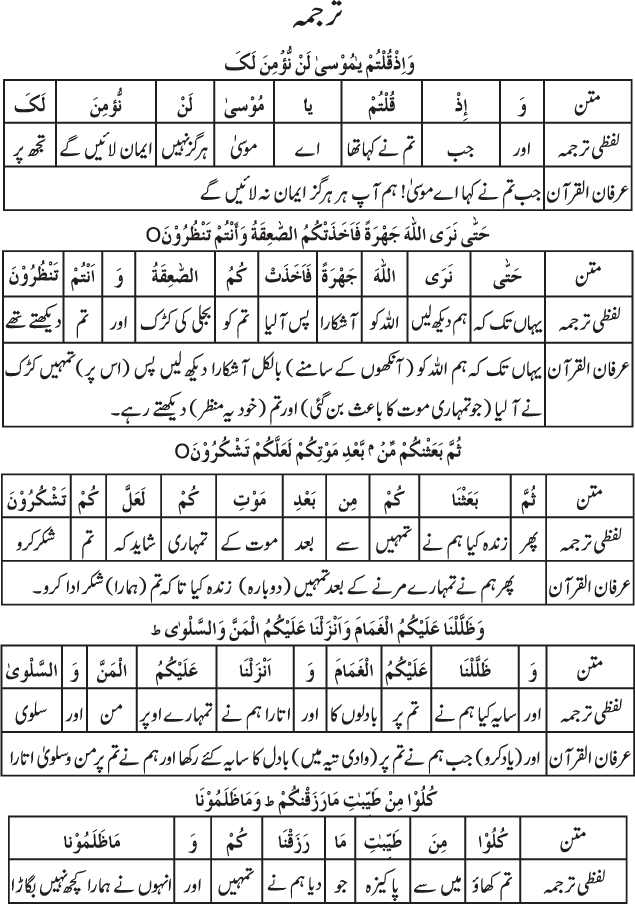 ترجمہ
وَاِذْ قُلْتُمْ یٰمُوْسیٰ لَنْ نُّؤْمِنَ لَکَ
متن وَ اِذْ قُلْتُمْ یا مُوْسیٰ لَنْ نُّؤْمِنَ لَکَ
لفظی ترجمہ اور جب تم نے کہا تھا اے موسیٰ ہرگز نہیں ایمان لائیں گے تجھ پر
عرفان القرآن جب تم نے کہا اے موسیٰ! ہم آپ پر ہرگز ایمان نہ لائیں گے
حَتّٰی نَرَی اللّٰهَ جَهْرَةً فَاَخَذَتْکُمُ الصّٰعِقَةُ وَاَنْتُمْ تَنْظُرُوْنَO
متن حَتّٰی نَرَی اللّٰهَ جَهْرَةً فَاَخَذَتْ کُمُ الصّٰعِقَةُ وَ اَنْتُمْ تَنْظُرُوْنَ
لفظی ترجمہ یہاں تک کہ ہم دیکھ لیں اللہ کو آشکارا پس آلیا تم کو بجلی کی کڑک اور تم دیکھتے تھے
عرفان القرآن یہاں تک کہ ہم اللہ کو (آنکھوں کے سامنے) بالکل آشکارا دیکھ لیں پس (اس پر) تمہیں کڑک
نے آلیا (جو تمہاری موت کا باعث بن گئی) اور تم (خود یہ منظر) دیکھتے رہے۔
ثُمَّ بَعَثْنٰکُمْ مِّنْۢ بَّعْدِ مَوْتِکُمْ لَعَلَّکُمْ تَشْکُرُوْنَO
متن ثُمَّ بَعَثْنَا کُمْ مِن بَعْدِ مَوْتِ کُمْ لَعَلَّ کُمْ تَشْکُرُوْنَ
لفظی ترجمہ پھر زندہ کیا ہم نے تمہیں سے بعد موت کے تمہاری شاید کہ تم شکر کرو
عرفان القرآن پھر ہم نے تمہارے مرنے کے بعد تمہیں (دوبارہ) زندہ کیا تاکہ تم (ہمارا) شکر ادا کرو۔
وَظَلَّلْنَا عَلَیْکُمُ الْغَمَامَ وَاَنْزَلْنَا عَلَیْکُمُ الْمَنَّ وَالسَّلْوٰی ط
متن وَ ظَلَّلْنَا عَلَیْکُمُ الْغَمَامَ وَ اَنْزَلْنَا عَلَیْکُمُ الْمَنَّ وَ السَّلْویٰ
لفظی ترجمہ اور سایہ کیا ہم نے تم پر بادلوں کا اور اتارا ہم نے تمہارے اوپر من اور سلوی
عرفان القرآن اور (یاد کرو) جب ہم نے تم پر (وادی تیہ میں) بادل کا سایہ کئے رکھا اور ہم نے تم پر من وسلویٰ اتارا
کُلُوْا مِنْ طَیِّبٰتِ مَا رَزَقْنٰکُمْ ط وَمَا ظَلَمُوْنَا
متن کُلُوْا مِنَ طَیِّبٰتِ مَا رَزَقْنَا کُمْ وَ مَاظَلَمُوْنا
لفظی ترجمہ تم کھاؤ میں سے پاکیزہ جو دیا ہم نے تمہیں اور انہوں نے ہمارا کچھ نہیں بگاڑا